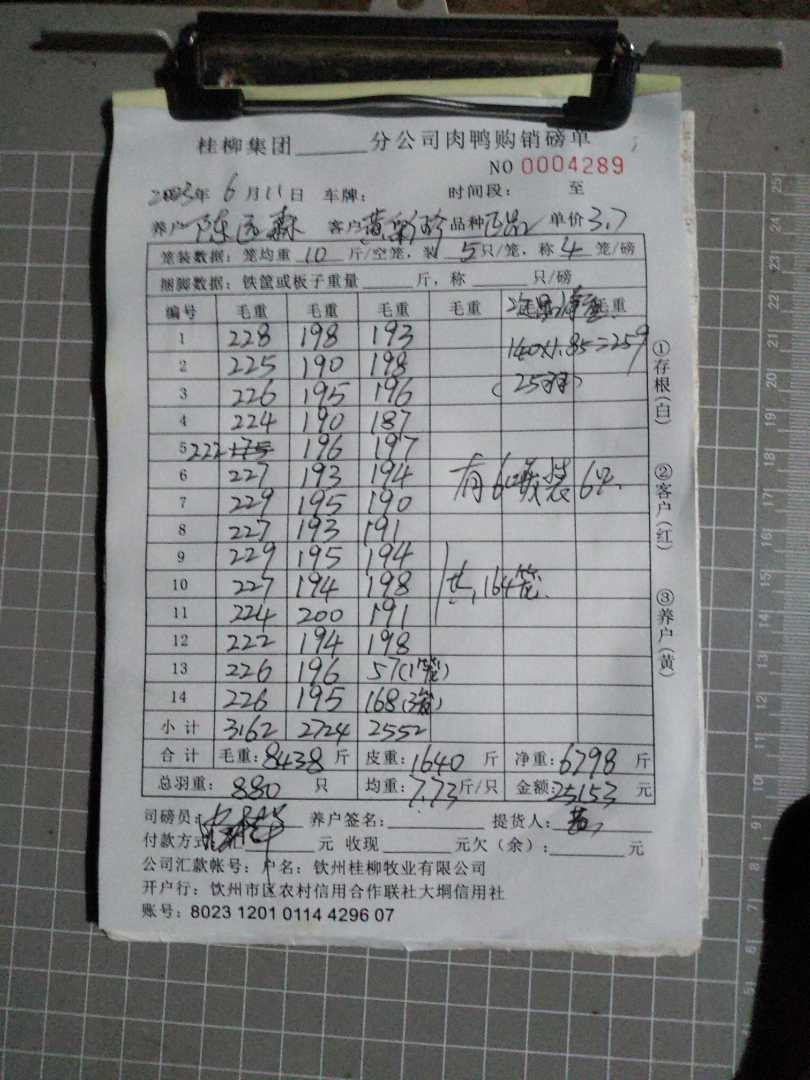 桂柳集团______分公司肉鸭购销磅单
NO 0004289
2023年 6 月 11 日 车牌： 时间段： 至
养户 陈 森 客户 黄彩珍 品种 单价 3.7
笼装数据：笼均重 10 斤/空笼，装 5 只/笼，称 4 笼/磅
捆脚数据：铁筐或板子重量______斤，称______只/磅
编号 毛重 毛重 毛重 毛重 毛重
1 228 198 193 140×1.85=259
2 225 190 198
3 226 195 196 (25羽)
4 224 190 187
5 222 175 196 197
6 227 193 194 有6 装6只
7 229 195 190
8 227 193 191
9 229 195 194
10 227 194 198 共164笼
11 224 200 191
12 222 194 198
13 226 196 57(1笼)
14 226 195 168(3笼)
小计 3162 2724 2552
合计 毛重：8438 斤 皮重：1640 斤 净重：6798 斤
总羽重：880 只 均重：7.73斤/只 金额：25153 元
司磅员： 养户签名：______ 提货人：黄
付款方式： 元 收现______元欠（余）：______元
公司汇款帐号：户名：钦州桂柳牧业有限公司
开户行：钦州市区农村信用合作联社大垌信用社
账号：8023 1201 0114 4296 07
①存根（白）
②客户（红）
③养户（黄）